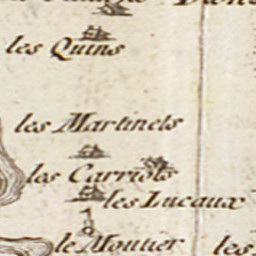 les Quins
les Martinets
les Carriols
les Lucaux
le Moutier
les